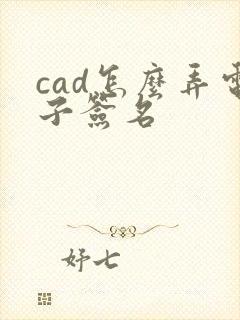 cad怎麼弄電
子簽名
妤七